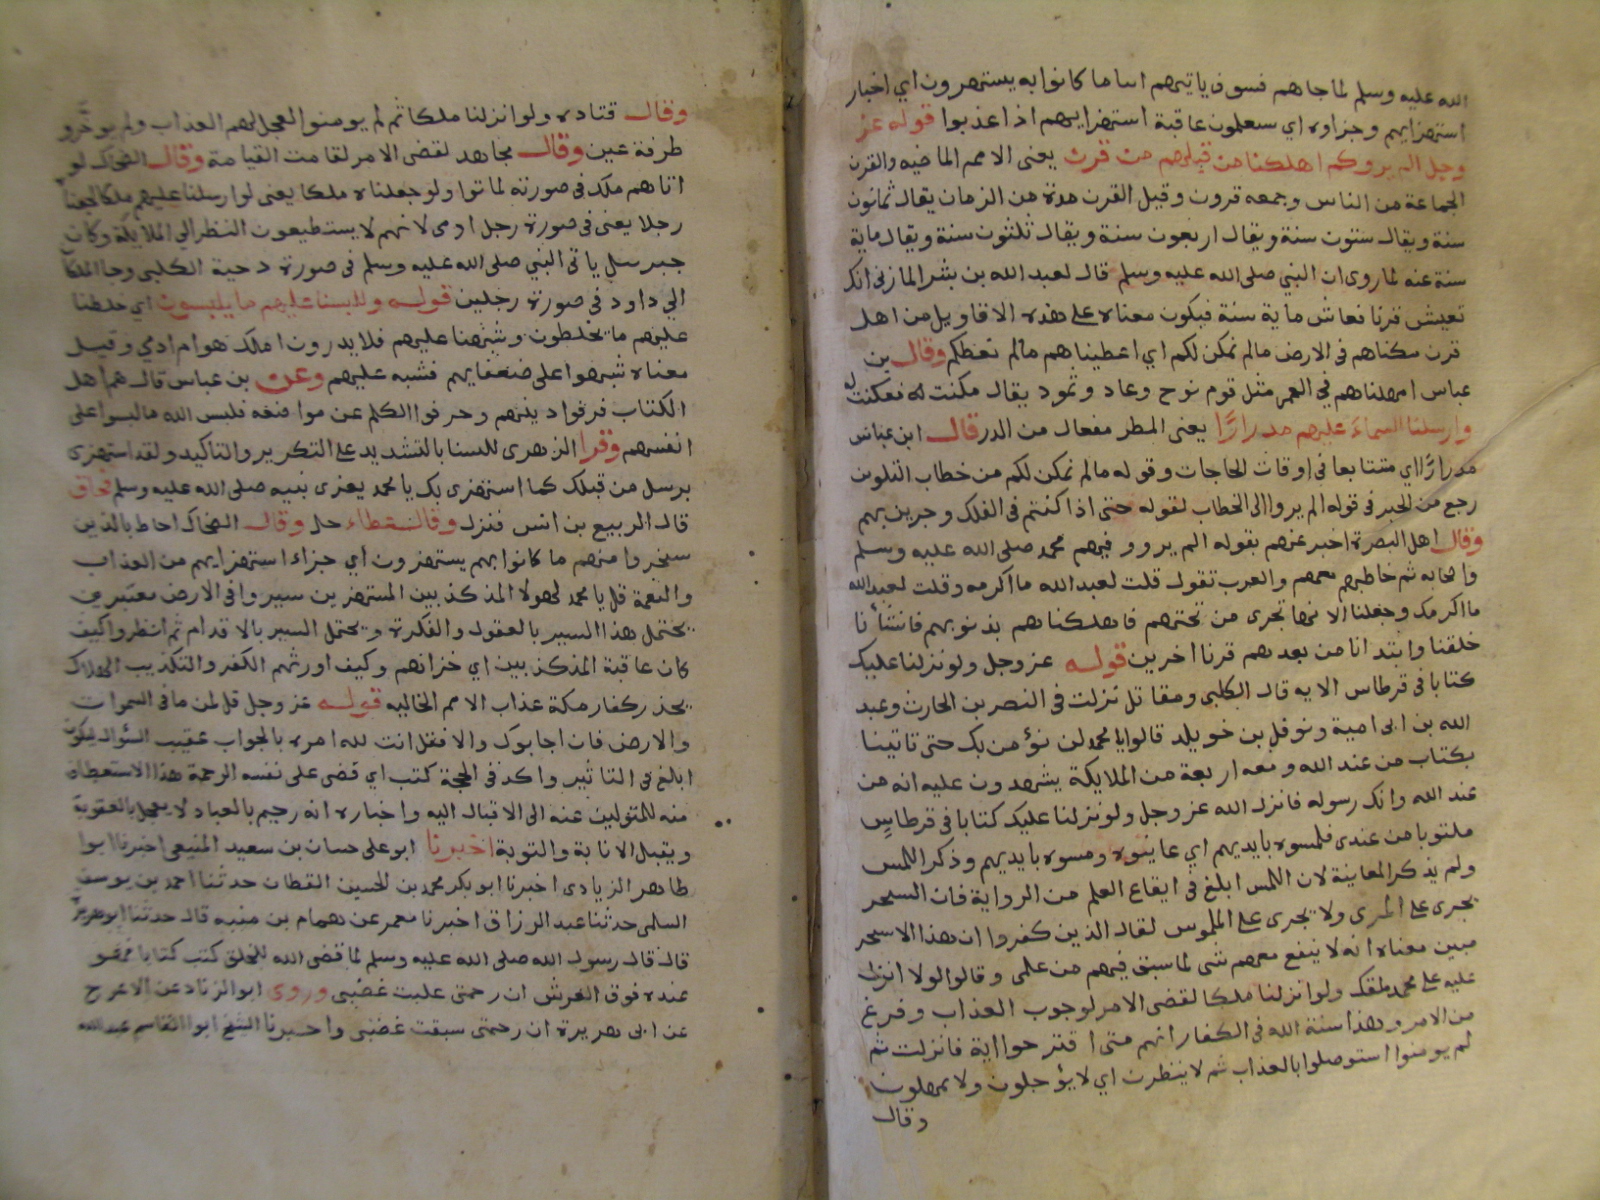 الله عليه وسلم لما جاهم فسوف ياتيهم انبا ما كانوا به يستهزون اي اخبار
استهزايهم وجزاوه اي سيعلمون عاقبة استهزايهم اذا عذبوا قوله عز
وجل الم يروكم اهلكنا من قبلهم من قرن يعنى الامم الماضيه والقرن
الجماعة من الناس وجمعه قرون وقيل القرن مدة من الزمان يقال ثمانون
سنة ويقال ستون سنة ويقال اربعون سنة ويقال ثلثون سنة ويقال ماية
سنة عنه لما روى ان النبي صلى الله عليه وسلم قال لعبد الله بن بشر المازنى انك
تعيش قرنا فعاش ماية سنة فيكون معناه على هذه الاقاويل من اهل
قرن مكناهم في الارض مالم نمكن لكم اي اعطيناهم مالم نعطكم وقال بن
عباس امهلناهم في العمر مثل قوم نوح وعاد وثمود يقال مكنت له فمكنت
وارسلنا السماء عليهم مدرارًا يعنى المطر مفعال من الدر قال ابن عباس
مدرارًا اي متتابعا في اوقات الحاجات وقوله مالم نمكن لكم من خطاب التلوين
رجع من الخبر في قوله الم يروا الى الخطاب لقوله حتى اذا كنتم في الفلك وجرين بهم
وقال اهل البصرة اخبر عنهم بقوله الم يروو فيهم محمد صلى الله عليه وسلم
واصحابه ثم خاطبهم معهم والعرب تقول قلت لعبد الله ما اكرمه وقلت لعبد الله
ما اكرمك وجعلنا الانهار تجرى من تحتهم فاهلكناهم بذنوبهم فانشأنا
خلقنا وابتدانا من بعدهم قرنا اخرين قوله عز وجل ولو نزلنا عليك
كتابا في قرطاس الايه قال الكلبى ومقاتل نزلت في النضر بن الحارث وعبد
الله بن ابى امية ونوفل بن خويلد قالوا يا محمد لن نؤمن بك حتى تاتينا
بكتاب من عند الله ومعه اربعة من الملايكة يشهدون عليه انه من
عند الله وانك رسوله فانزل الله عز وجل ولو نزلنا عليك كتابا في قرطاسٍ
مكتوبا من عندى فلمسوه بايديهم اي عاينوه ومسوه بايديهم وذكر اللمس
ولم يذكر المعاينة لان اللمس ابلغ في ايقاع العلم من الرواية فان السحر
يجرى على المرى ولا يجرى على الملموس لقال الذين كفروا ان هذا الا سحر
مبين معناه انه لا ينفع معهم شى لما سبق فيهم من علمى وقالوا لولا انزل
عليه على محمد ملك ولو انزلنا ملكا لقضى الامر لوجوب العذاب وفرغ
من الامر وهذا سنة الله في الكفار انهم متى اقترحوا اية فانزلت ثم
لم يومنوا استوصلوا بالعذاب ثم لا ينظرن اي لا يؤجلون ولا يمهلون
وقال
وقال قتاده ولو انزلنا ملكا ثم لم يومنوا لعجل لهم العذاب ولم يوخرو
طرفة عين وقال مجاهد لقضى الامر لقامت القيامة وقال الضحاك لو
اتاهم ملك في صورته لماتوا ولو جعلناه ملكا يعنى لو ارسلنا عليهم ملكا لجعلناه
رجلا يعنى في صورة رجل ادمى لانهم لا يستطيعون النظر الى الملايكة وكان
جبرييل ياتى النبي صلى الله عليه وسلم في صورة دحية الكلبى وجا الملكان
الي داود في صورة رجلين قوله وللبسنا عليهم ما يلبسون اي خلطنا
عليهم ما يخلطون وشبهنا عليهم فلا يدرون املك هو ام ادمي وقيل
معناه شبهوا على ضعفايهم فشبه عليهم وعن بن عباس قال هم اهل
الكتاب فرقوا دينهم وحرفوا الكلم عن مواضعه فلبس الله ما لبسوا على
انفسهم وقرا الزهرى للبسنا بالتشديد على التكرير والتاكيد ولقد استهزى
برسل من قبلك كما استهزى بك يا محمد يعزى نبيه صلى الله عليه وسلم فحاق
قال الربيع بن انس فنزل وقال عطاء حل وقال الضحاك احاط بالذين
سخروا منهم ما كانوا بهم يستهزون اي جزاء استهزايهم من العذاب
والنعمة قل يا محمد لهولا المكذبين المستهزين سيروا في الارض معتبرين
يحتمل هذا السير بالعقول والفكرة ويحتمل السير بالاقدام ثم انظروا كيف
كان عاقبة المذكذبين اي خزانهم وكيف اورثهم الكفر والتكذيب الهلاك
يحذر كفار مكة عذاب الامم الخاليه قوله عز وجل قل لمن ما في السموات
والارض فان اجابوك والا فقل انت لله امره بالجواب عقيب السؤال ليكون
ابلغ في التاثير واكد في الحجة كتب اي قضى على نفسه الرحمة هذا الاستعطاف
منه للمتولين عنه الى الاقبال اليه واخباره انه رحيم بالعباد لا يعجل بالعقوبة
ويقبل الانابة والتوبة اخبرنا ابو على حسان بن سعيد المنيعى اخبرنا ابوا
طاهر الزيادى اخبرنا ابو بكر محمد بن الحسين القطان حدثنا احمد بن يوسف
السلمى حدثنا عبد الرزاق اخبرنا معمر عن همام بن منبه قال حدثنا ابو هريرة
قال قال رسول الله صلى الله عليه وسلم لما قضى الله الخلق كتب كتابا فهو
عنده فوق العرش ان رحمتى غلبت غضبى وروى ابو الزناد عن الاعرج
عن ابى هريرة ان رحمتى سبقت غضبى واخبرنا الشيخ ابوا القاسم عبد الله